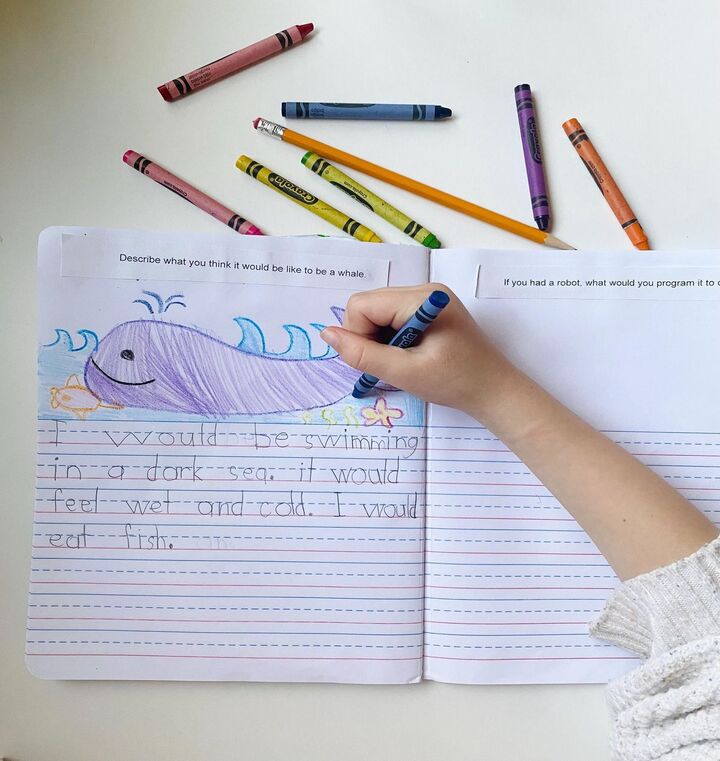 Crayola
Crayola
Crayola
Describe what you think it would be like to be a whale.
If you had a robot, what would you program it to
I would be swimming
in a dark sea. it would
feel wet and cold. I would
eat fish.